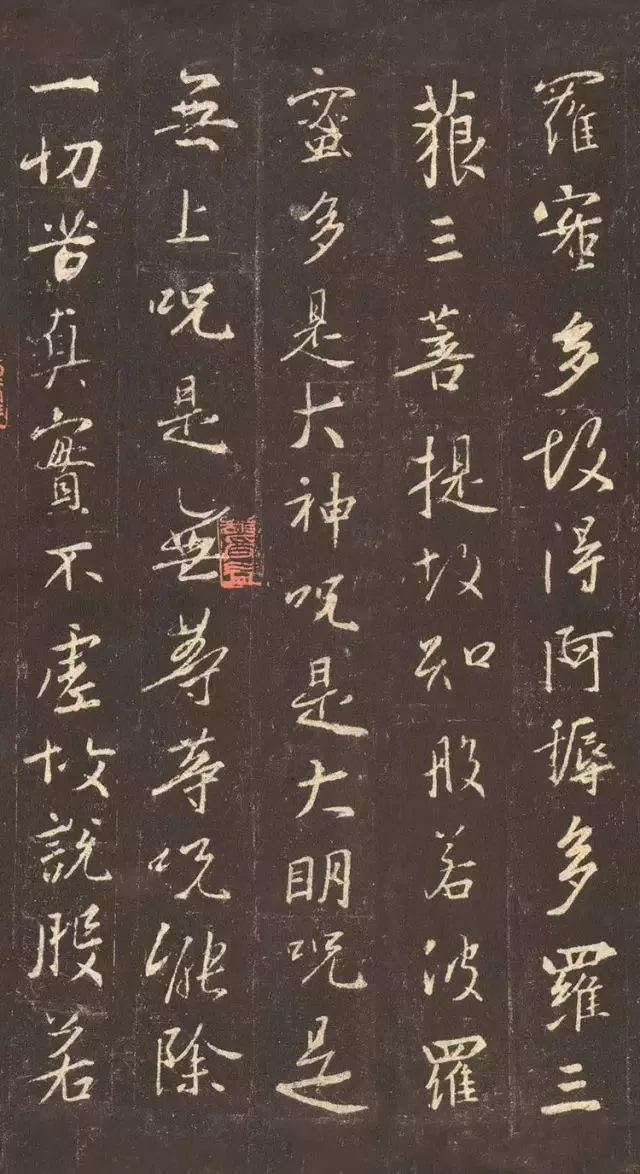 羅蜜多故得阿耨多羅三
藐三菩提故知般若波羅
蜜多是大神咒是大明咒是
無上咒是無等等咒能除
一切苦真實不虛故說般若